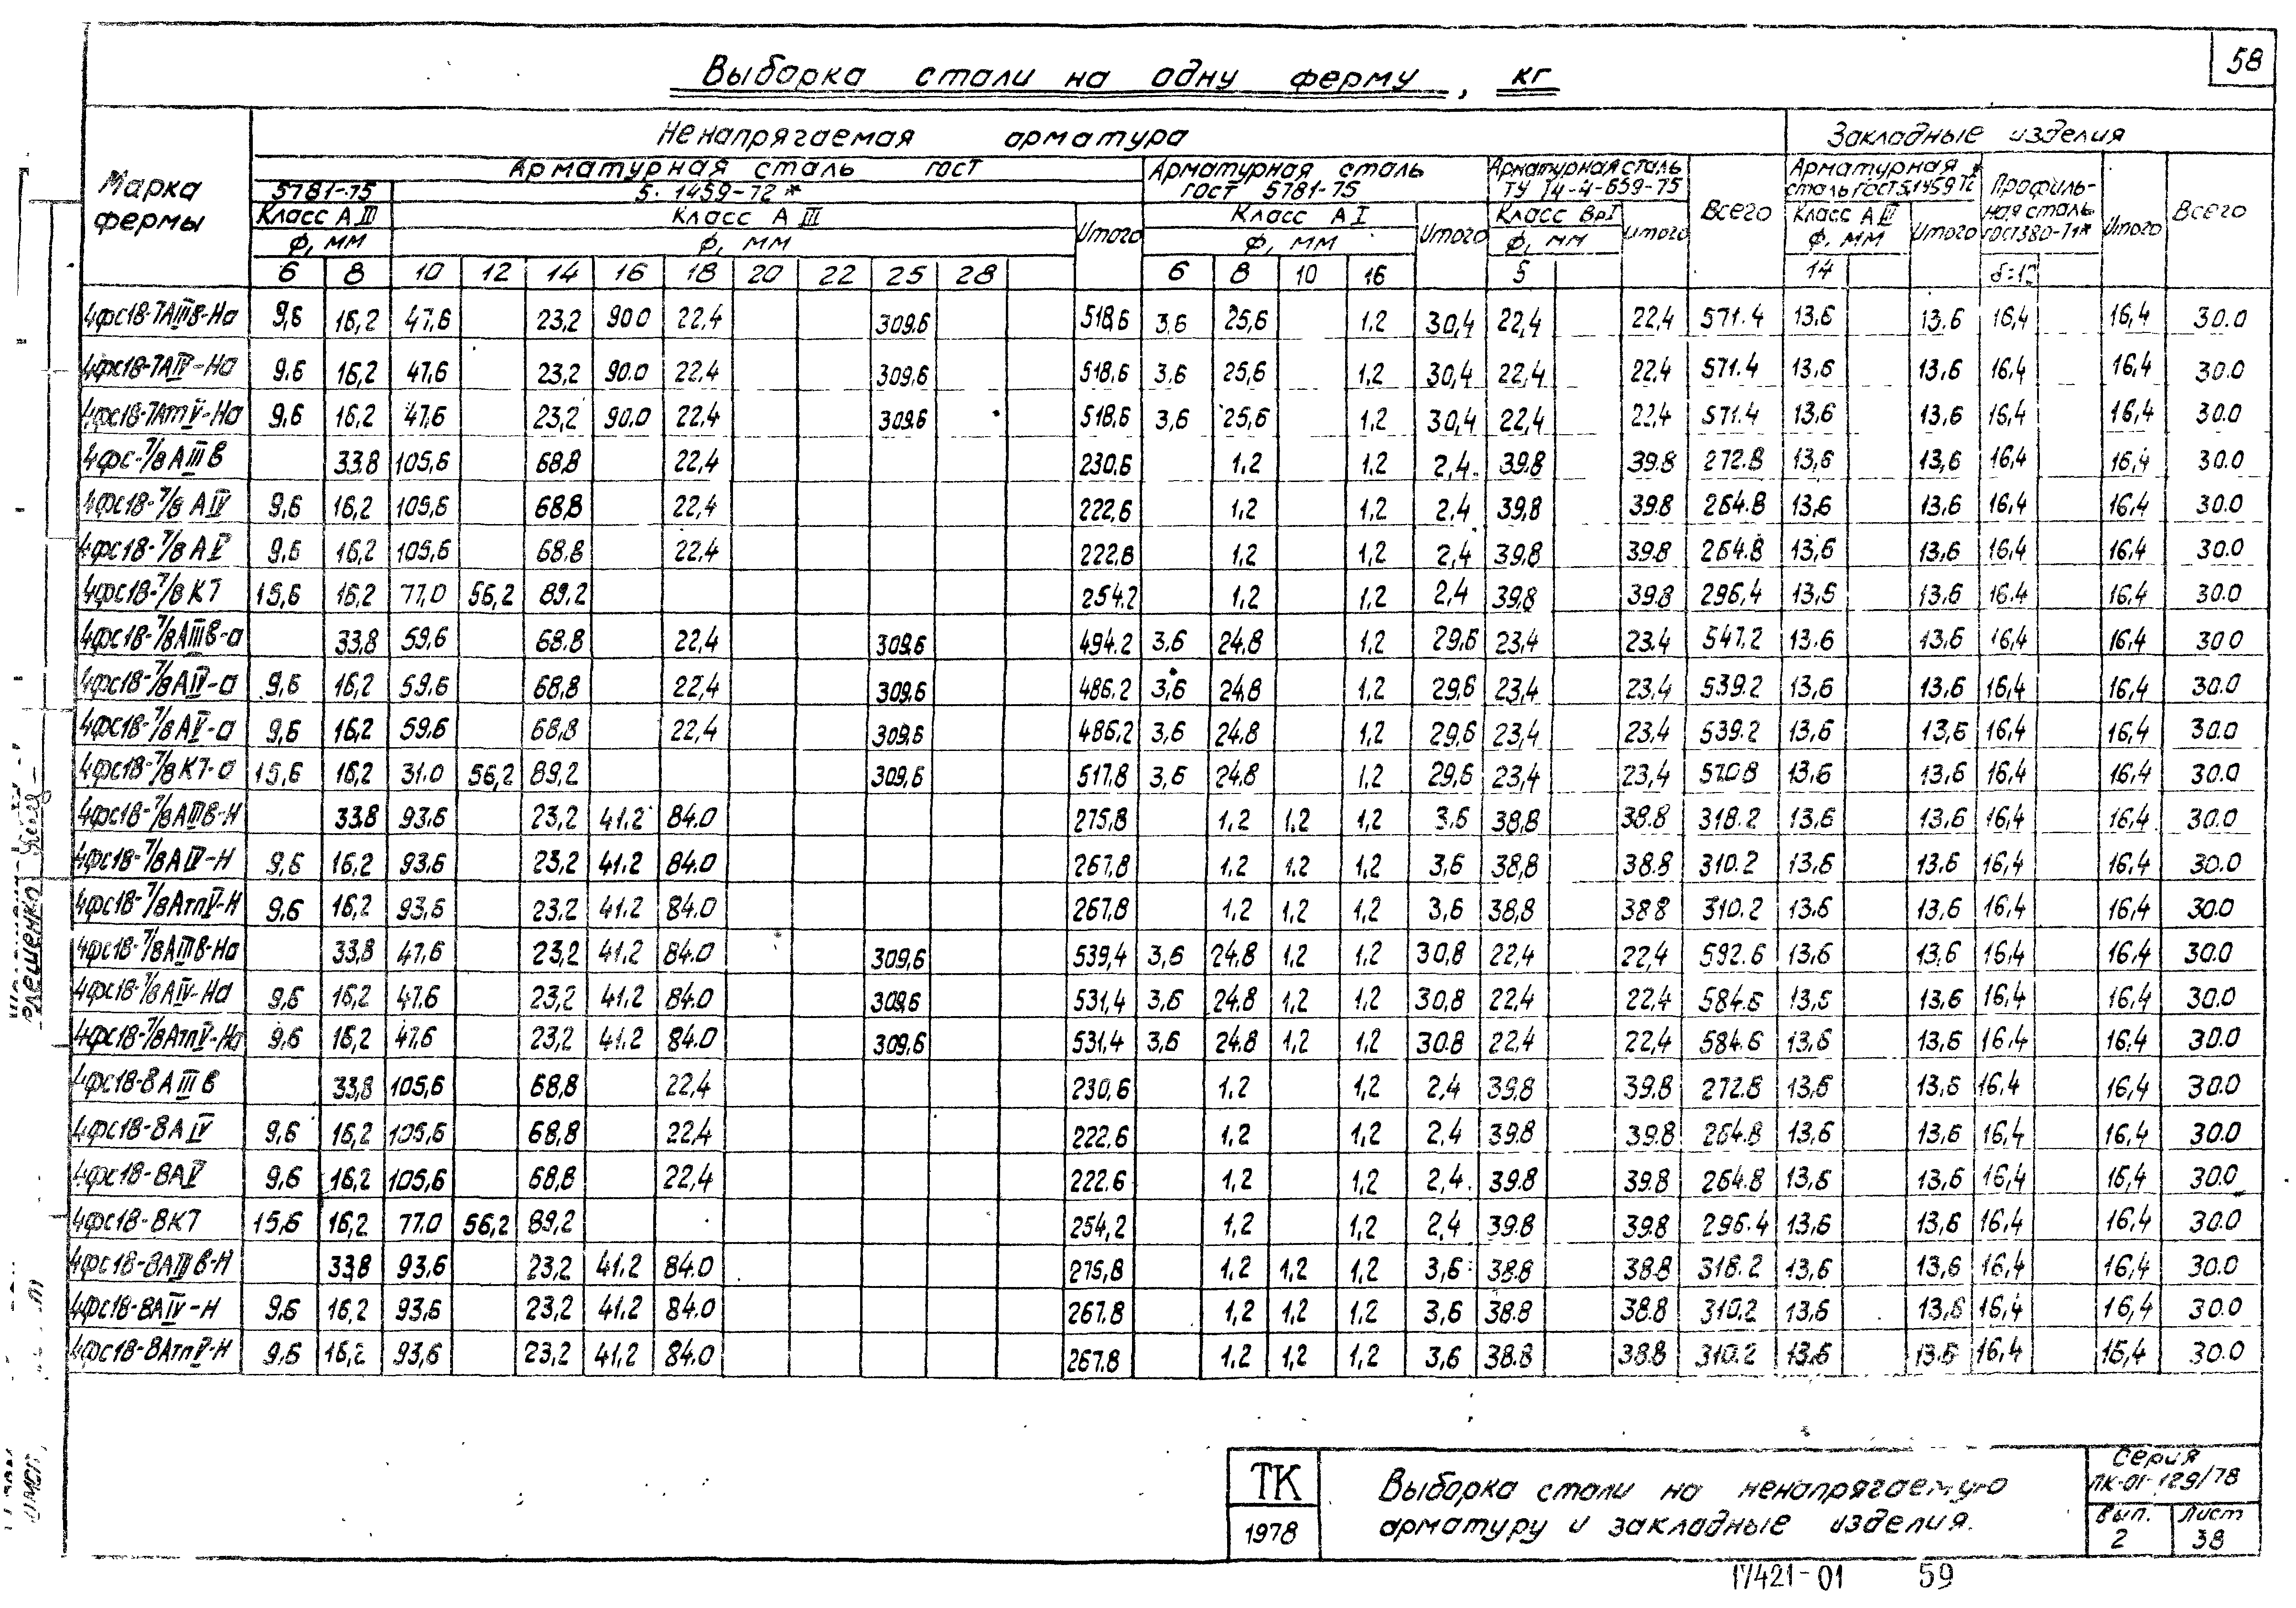 58
Выборка стали на одну ферму, кг
Марка фермы
Ненапрягаемая арматура
Закладные изделия
Арматурная сталь ГОСТ
5781-75
5.1459-72*
Класс А III
Класс А III
Ф, мм
Ф, мм
Итого
Арматурная сталь ГОСТ 5781-75
Класс А I
Ф, мм
Итого
Арматурная сталь ТУ 14-4-659-75
Класс ВрI
Ф, мм
Итого
Всего
Арматурная сталь ГОСТ 5.1459-72*
Класс А III
Ф, мм
Итого
Профильная сталь ГОСТ 380-71*
Итого
Всего
6 8 10 12 14 16 18 20 22 25 28 6 8 10 16 5 14
4фс18-7АIIIв-На 9,6 16,2 47,6 23,2 90.0 22,4 309.6 518,6 3,6 25,6 1,2 30,4 22,4 22,4 571.4 13,6 13.6 16,4 16,4 30.0
4фс18-7АIV-На 9.6 16,2 47,6 23,2 90.0 22,4 309,6 518,6 3.6 25,6 1,2 30,4 22,4 22,4 571.4 13,6 13,6 16.4 16,4 30.0
4фс18-7АтV-На 9,6 16,2 47,6 23,2 90.0 22,4 309.6 518,6 3,6 25,6 1,2 30,4 22,4 22,4 571.4 13,6 13,6 16,4 16,4 30.0
4фс-7/8 АIIIв 33.8 105,6 68,8 22,4 230.6 1,2 1,2 2,4 39.8 39.8 272.8 13,6 13,6 16,4 16,4 30.0
4фс18-7/8 АIV 9,6 16,2 105,6 68,8 22,4 222,6 1,2 1,2 2,4 39,8 39.8 264.8 13,6 13,6 16,4 16,4 30.0
4фс18-7/8 АV 9,6 16,2 105,6 68.8 22,4 222,6 1,2 1,2 2,4 39,8 39.8 264.8 13,6 13,6 16,4 16,4 30.0
4фс18-7/8 К7 15,6 16,2 77,0 56,2 89.2 254.2 1,2 1,2 2,4 39,8 39.8 296,4 13,6 13,6 16.4 16,4 30.0
4фс18-7/8АIIIв-а 33,8 59,6 68.8 22,4 309,6 494.2 3,6 24,8 1,2 29,6 23,4 23,4 547.2 13,6 13,6 16,4 16,4 30.0
4фс18-7/8АIV-а 9,6 16,2 59,6 68,8 22,4 309,6 486.2 3,6 24,8 1,2 29,6 23,4 23,4 539.2 13,6 13,6 16,4 16,4 30.0
4фс18-7/8АV-а 9,6 16,2 59,6 68,8 22,4 309,6 486,2 3,6 24,8 1,2 29,6 23,4 23,4 539.2 13,6 13,6 16,4 16,4 30.0
4фс18-7/8К7-а 15,6 16,2 31.0 56,2 89,2 309,6 517,8 3,6 24,8 1,2 29,6 23,4 23,4 570.8 13,6 13,6 16,4 16,4 30.0
4фс18-7/8АIIIв-Н 33.8 93.6 23,2 41.2 84.0 275,8 1,2 1,2 1,2 3,6 38,8 38.8 318.2 13,6 13,6 16,4 16,4 30.0
4фс18-7/8АIV-Н 9,6 16,2 93,6 23,2 41.2 84.0 267,8 1,2 1,2 1,2 3,6 38,8 38.8 310.2 13,6 13,6 16,4 16,4 30.0
4фс18-7/8АтпV-Н 9,6 16,2 93,6 23,2 41.2 84.0 267.8 1,2 1,2 1,2 3,6 38,8 38.8 310.2 13,6 13,6 16,4 16,4 30.0
4фс18-7/8АIIIв-На 33,8 47,6 23,2 41,2 84.0 309,6 539,4 3,6 24,8 1,2 1,2 30,8 22,4 22,4 592.6 13,6 13,6 16,4 16,4 30.0
4фс18-7/8АIV-На 9,6 16,2 47,6 23,2 41,2 84.0 309,6 531,4 3,6 24,8 1,2 1,2 30,8 22,4 22,4 584.6 13,6 13,6 16,4 16,4 30.0
4фс18-7/8АтпV-На 9,6 16,2 47,6 23,2 41.2 84.0 309,6 531,4 3,6 24,8 1,2 1,2 30.8 22,4 22,4 584.6 13,6 13,6 16,4 16,4 30.0
4фс18-8АIIIв 33,8 105,6 68,8 22,4 230,6 1,2 1,2 2,4 39,8 39.8 272.8 13,6 13,6 16,4 16,4 30.0
4фс18-8АIV 9,6 16,2 105,6 68,8 22,4 222,6 1,2 1,2 2,4 39.8 39.8 264.8 13,6 13,6 16,4 16,4 30.0
4фс18-8АV 9,6 16,2 105,6 68,8 22,4 222.6 1,2 1,2 2,4 39.8 39.8 264.8 13,6 13,6 16,4 16,4 30.0
4фс18-8К7 15,6 16,2 77.0 56,2 89,2 254,2 1,2 1,2 2,4 39.8 39.8 296.4 13,6 13,6 16,4 16,4 30.0
4фс18-8АIIIв-Н 33,8 93.6 23,2 41.2 84.0 275,8 1,2 1,2 1,2 3,6 38.8 38.8 318.2 13,6 13,6 16,4 16,4 30.0
4фс18-8АIV-Н 9,6 16,2 93,6 23,2 41,2 84.0 267.8 1,2 1,2 1,2 3,6 38.8 38.8 310.2 13,6 13,6 16,4 16,4 30.0
4фс18-8АтпV-Н 9,6 16,2 93,6 23,2 41,2 84.0 267.8 1,2 1,2 1,2 3,6 38.8 38.8 310.2 13,6 13,6 16,4 16,4 30.0
ТК
1978
Выборка стали на ненапрягаемую
арматуру и закладные изделия.
Серия
ПК-01-129/78
Вып. 2
Лист 38
17421-01 59